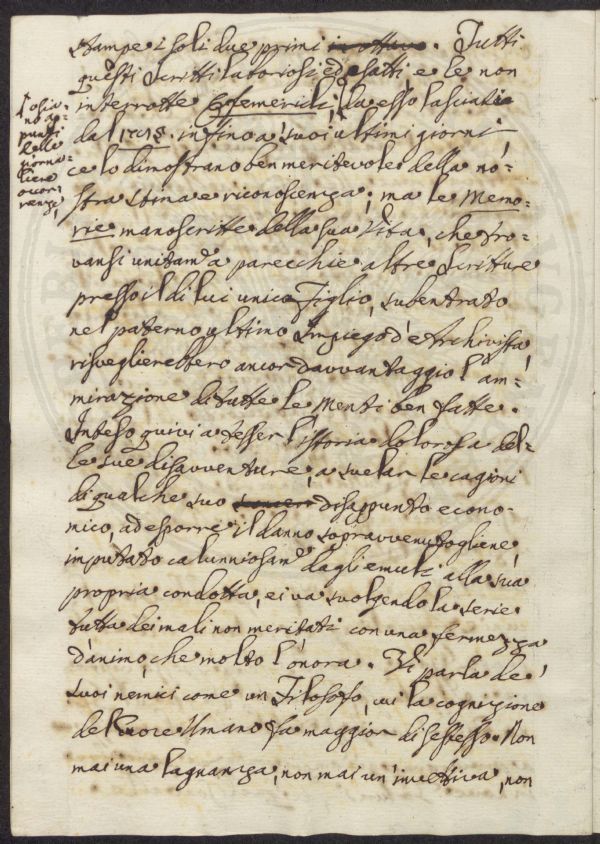 stampe i soli due primi in ottavo. Tutti
questi scritti laboriosi ed esatti e le non
interrotte Efemeridi, da esso lasciate
dal insino a' suoi ultimi giorni
o sia-
no ap-
punti
delle
giorna-
liere
occor-
renze
ce lo dimostrano ben meritevole della no-
stra stima e riconoscenza; ma le Memo-
rie manoscritte della sua Vita, che tro-
vansi unitam.e a parecchie altre Scritture
presso il di lui unico Figlio, subentrato
nel paterno ultimo Impiego d'Archivista
risveglierebbero ancor davvantaggio l'am-
mirazione di tutte le Menti ben fatte.
Inteso quivi a tesser l'Istoria dolorosa del-
le sue disavventure, a svelar le cagioni
di qualche suo disappunto econo-
mico, ad esporre il danno sopravvenutogliene,
imputato calunniosam.e dagli emuli alla sua
propria condotta, ei va svolgendo la serie
tutta dei mali non meritati con una fermezza
d'animo, che molto l'onora. Vi parla de'
suoi nemici come un Filosofo, cui la cognizione
del Cuore Umano fa maggior di se stesso. Non
mai una lagnanza, non mai un'invettiva, non